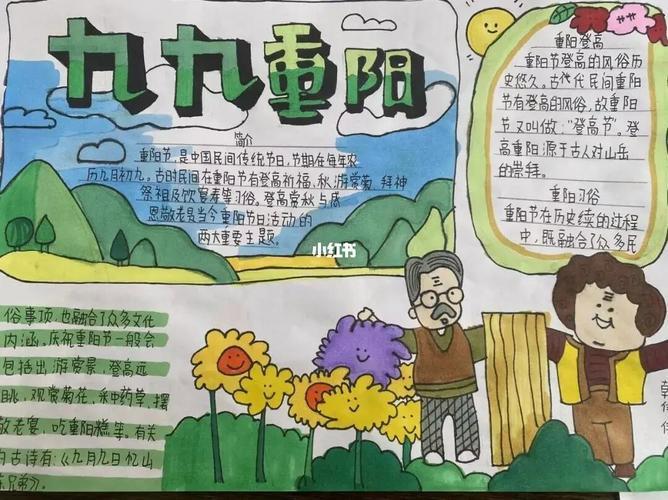 九九重阳
简介
重阳节，是中国民间传统节日，节期在每年农
历九月初九。古时民间在重阳节有登高祈福、秋游赏菊、拜神
祭祖及饮宴寿等习俗。登高赏秋与感
恩敬老是当今重阳节日活动的
两大重要主题。
小红书
重阳登高
重阳节登高的风俗历
史悠久。古代民间重阳
节有登高的风俗，故重阳
节又叫做："登高节"。登
高重阳源于古人对山岳
的崇拜。
重阳习俗
重阳节在历史续的过程
中，既融合了众多民
俗事项，也融合了众多文化
内涵。庆祝重阳节一般会
包括出游赏景、登高远
眺、观赏菊花、采中药草、摆
敬老宴、吃重阳糕等。有关
古诗有：《九月九日忆山
东兄弟》。